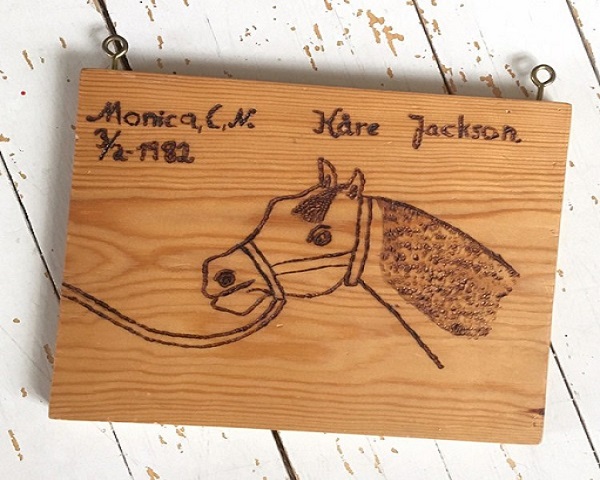 Monica, C, N. Kåre Jackson.
3/2-1982